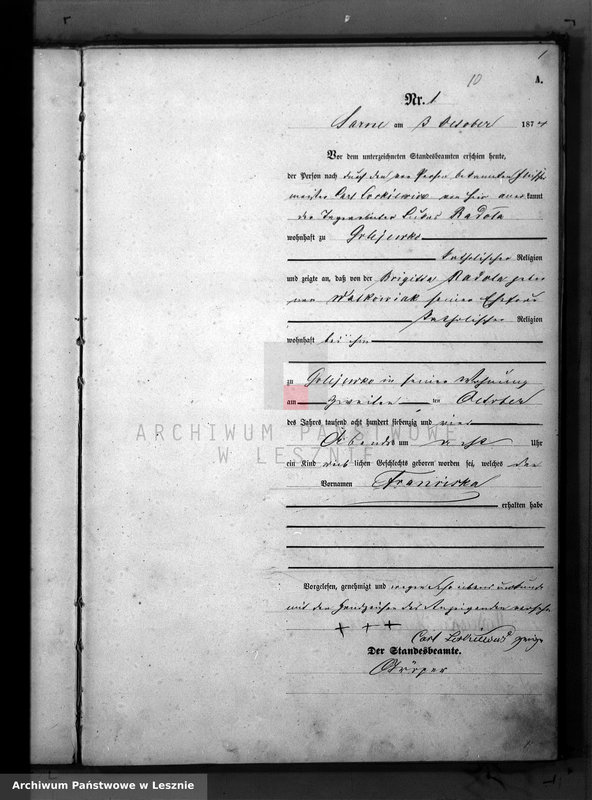 1
10
A.
Nr. 1
Sarne am 3 October 1874
Vor dem unterzeichneten Standesbeamten erschien heute,
der Person nach durch den von Person bekannten
Carl von hier anerkannt
der Lucas Radola
wohnhaft zu Golejewko
katholischer Religion
und zeigte an, daß von der Brigitta Radola gebor
nen Walkowiak seiner Ehefrau
katholischer Religion
wohnhaft bei ihm
zu Golejewko in seiner Wohnung
am zweiten ten October
des Jahres tausend acht hundert siebenzig und vier
Abends um acht Uhr
ein Kind weiblichen Geschlechts geboren worden sei, welches den
Vornamen Franciska
erhalten habe
Vorgelesen, genehmigt und wegen Schreibensunkunde
mit den Handzeichen des Anzeigenden versehen
+ + +
Carl
Der Standesbeamte.
ARCHIWUM PAŃSTWOWE
W LESZNIE
Archiwum Państwowe w Lesznie